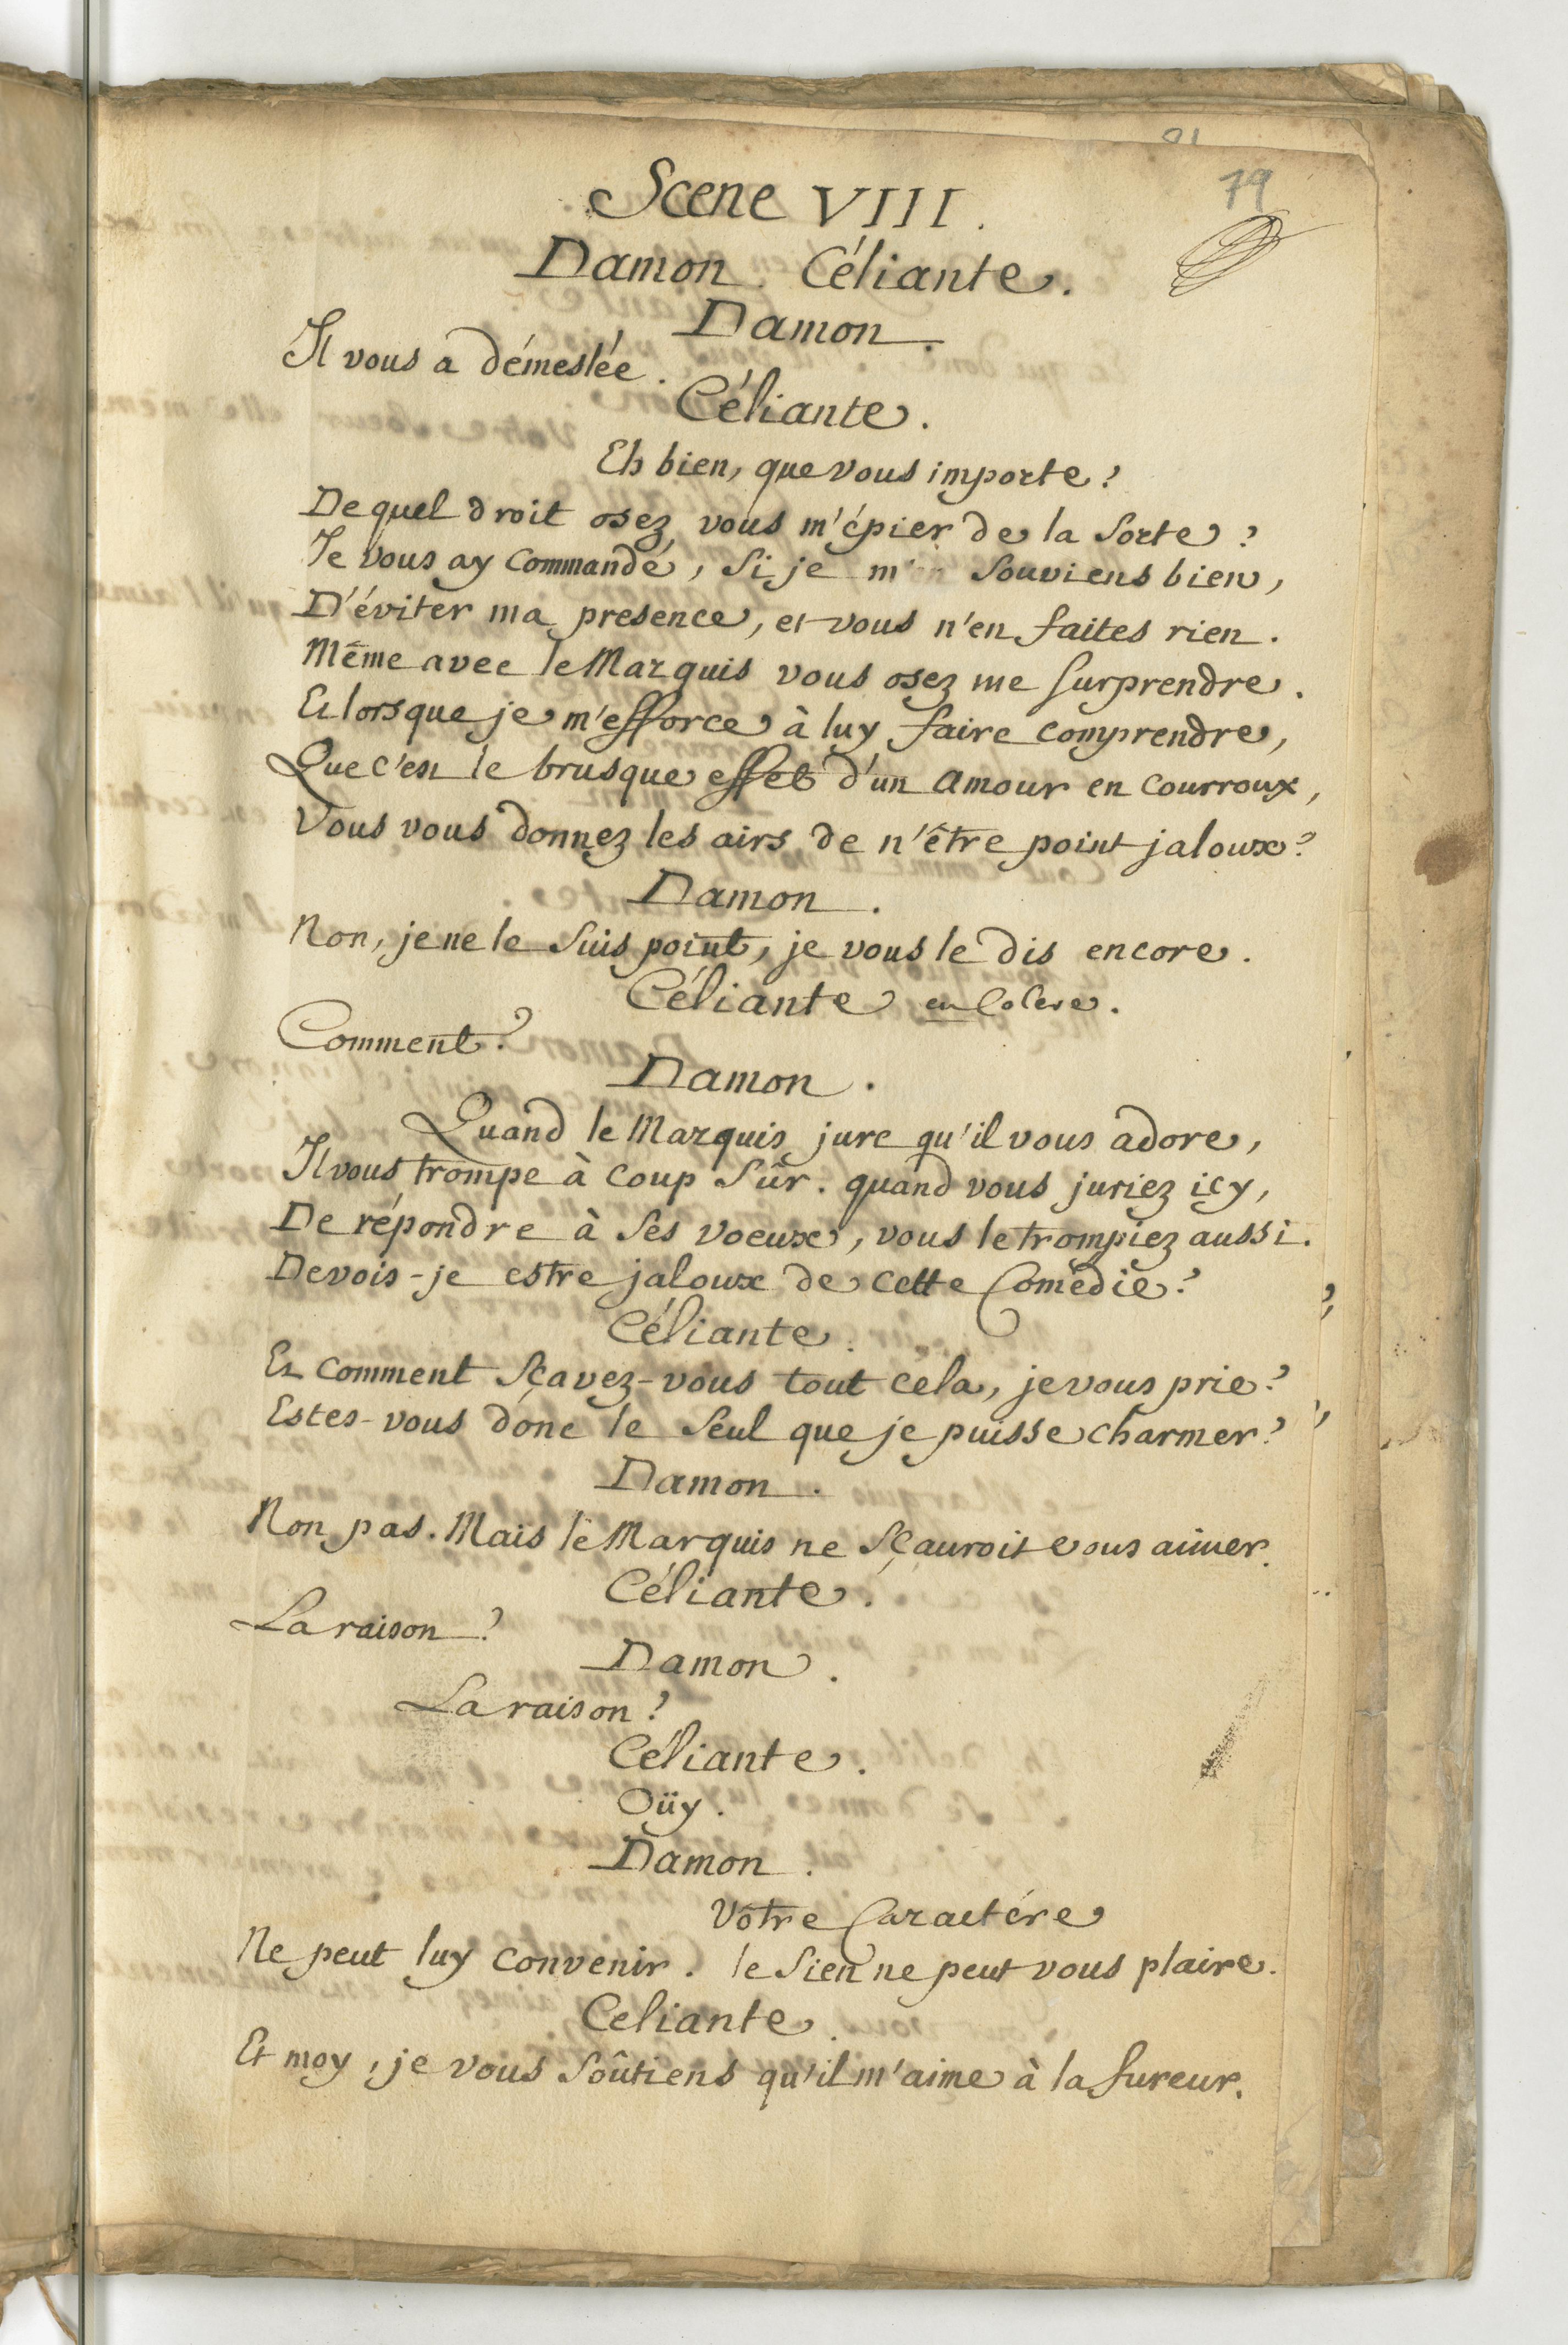 79
Scene VIII.
Damon. Céliante.
Damon.
Il vous a démeslée.
Céliante.
Eh bien, que vous importe?
De quel droit osez vous m'épier de la sorte?
Je vous ay commandé, si je m'en souviens bien,
D'éviter ma presence, et vous n'en faites rien.
Même avec le Marquis vous osez me surprendre.
Et lorsque je m'efforce à luy faire comprendre,
Que c'est le brusque effet d'un amour en courroux,
Vous vous donnez les airs de n'être point jaloux?
Damon.
Non, je ne le suis point, je vous le dis encore.
Céliante en colere.
Comment?
Damon.
Quand le Marquis jure qu'il vous adore,
Il vous trompe à coup sûr. quand vous juriez icy,
De répondre à ses voeux, vous le trompiez aussi.
Devois-je estre jaloux de cette Comédie?
Céliante.
Et comment sçavez-vous tout cela, je vous prie?
Estes-vous donc le seul que je puisse charmer?
Damon.
Non pas. Mais le Marquis ne sçauroit vous aimer.
Céliante.
La raison?
Damon.
La raison?
Céliante.
Oüy.
Damon.
Vôtre Caractére
Ne peut luy convenir. le sien ne peut vous plaire.
Celiante.
Et moy, je vous soûtiens qu'il m'aime à la fureur.